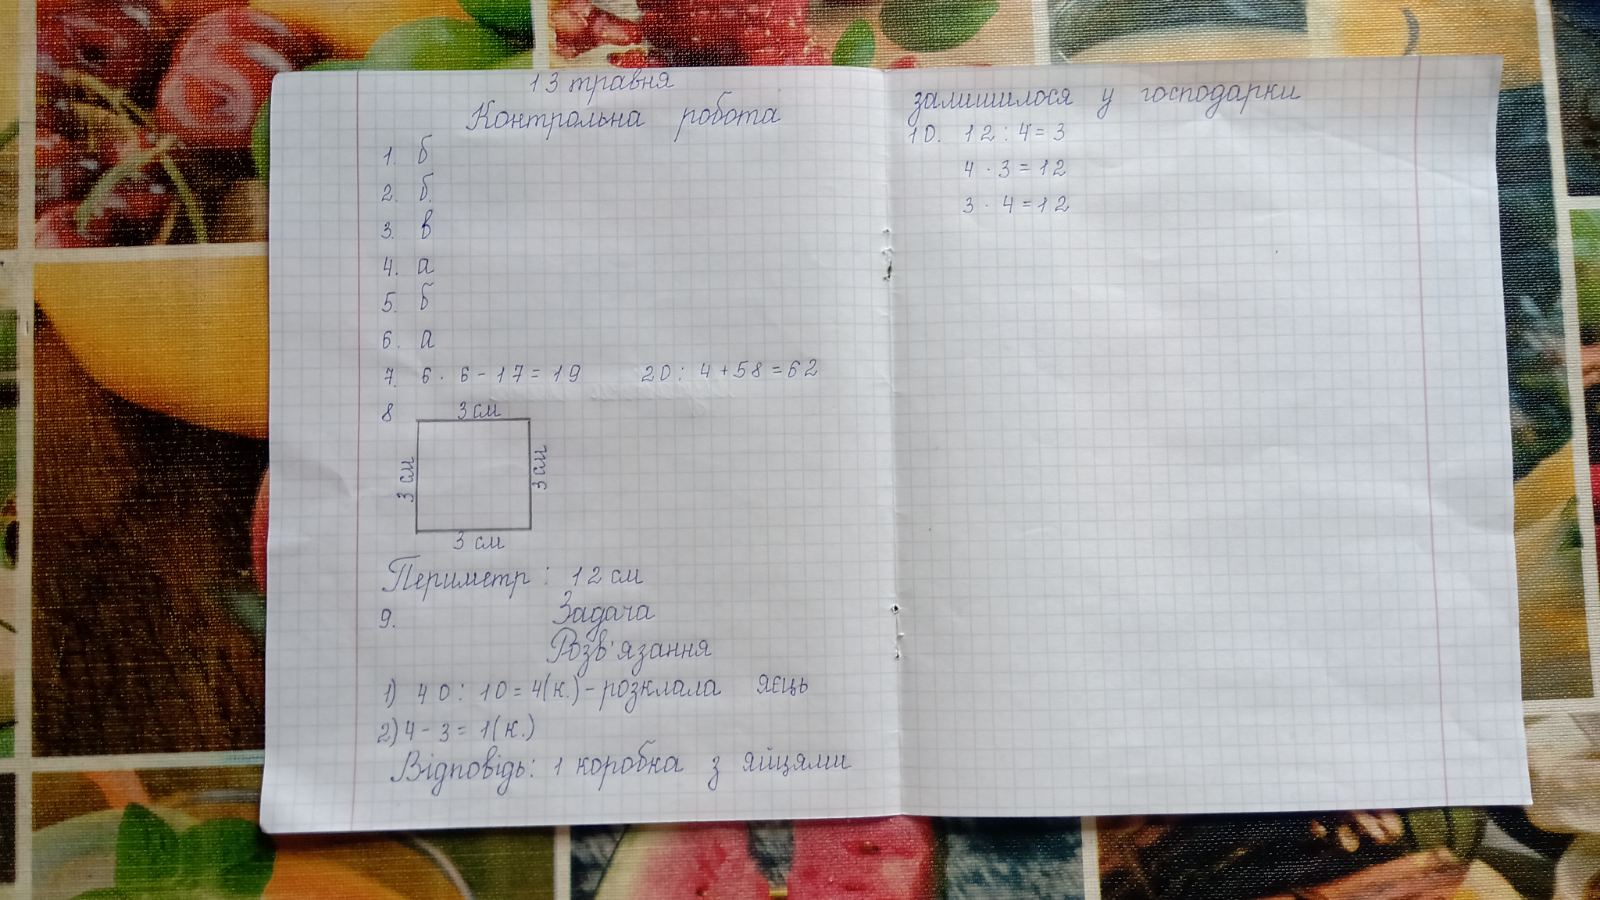 13 травня
Контрольна робота
1. б
2. б.
3. в
4. а
5. б
6. а
7. 6 · 6 - 17 = 19 20 : 4 + 58 = 62
8
3 см
3 см
3 см
3 см
Периметр : 12 см
9. Задача
Розв'язання
1) 40 : 10 = 4(к.) - розклала яєць
2) 4 - 3 = 1(к.)
Відповідь: 1 коробка з яйцями
залишилося у господарки
10. 12 : 4 = 3
4 · 3 = 12
3 · 4 = 12